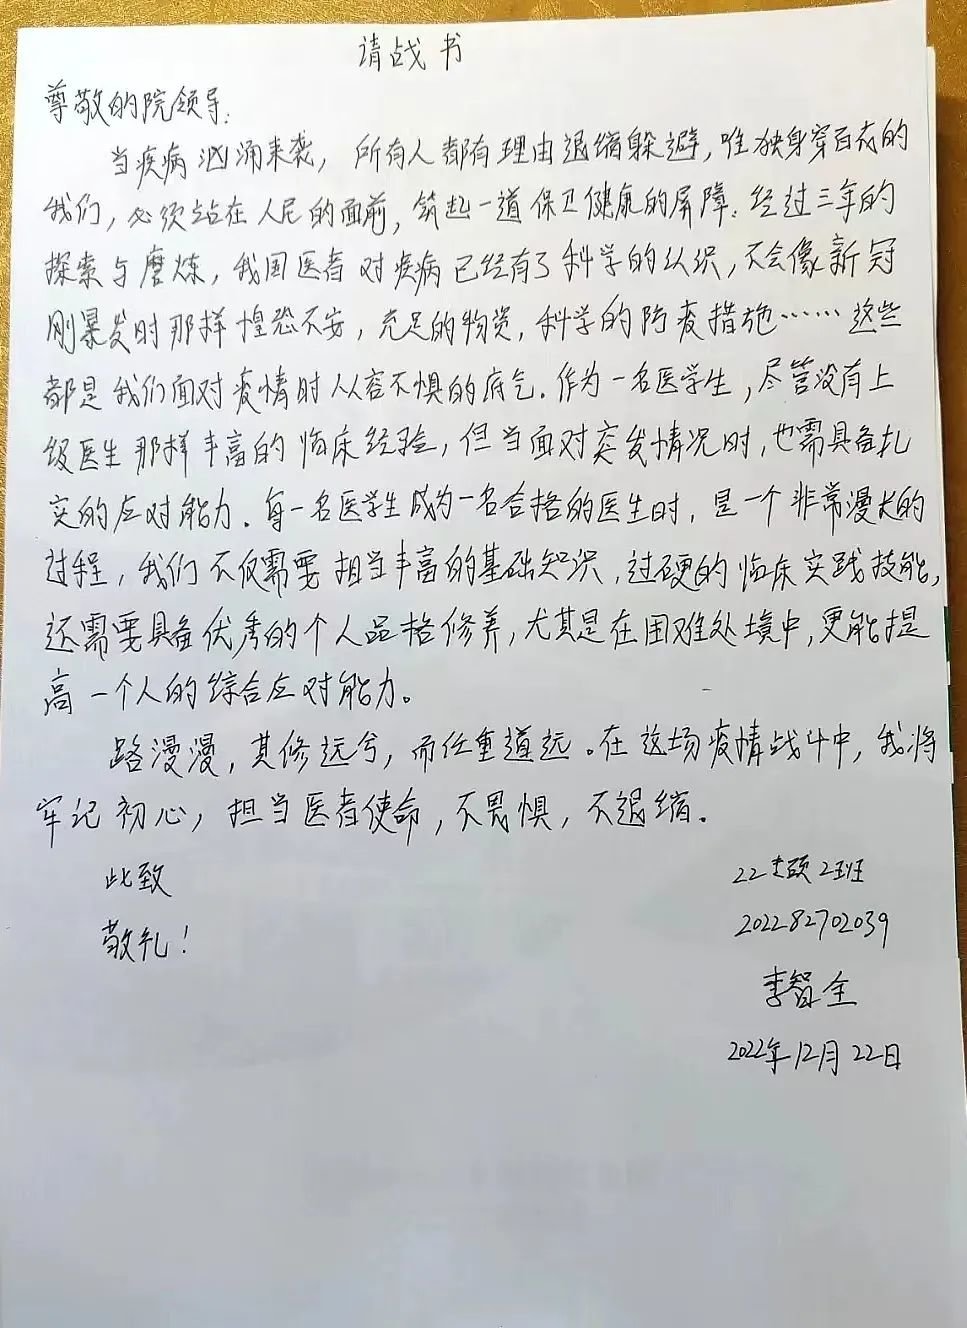 请战书
尊敬的院领导:
当疾病汹涌来袭,所有人都有理由退缩躲避,唯独身穿白衣的
我们,必须站在人民的面前,筑起一道保卫健康的屏障.经过三年的
探索与磨炼,我国医者对疾病已经有了科学的认识,不会像新冠
刚暴发时那样惶恐不安,充足的物资,科学的防疫措施……这些
都是我们面对疫情时从容不惧的底气.作为一名医学生,尽管没有上
级医生那样丰富的临床经验,但当面对突发情况时,也需具备扎
实的应对能力.每一名医学生成为一名合格的医生时,是一个非常漫长的
过程,我们不仅需要担当丰富的基础知识,过硬的临床实践技能,
还需要具备优秀的个人品格修养,尤其是在困难处境中,更能提
高一个人的综合应对能力。
路漫漫,其修远兮,而任重道远.在这场疫情战斗中,我将
牢记初心,担当医者使命,不畏惧,不退缩.
此致
敬礼!
22硕2班
202282702039
李智全
2022年12月22日